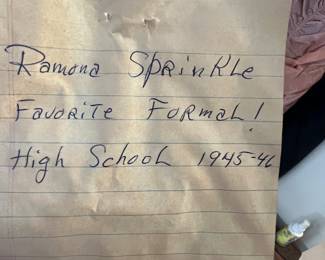 Ramona Sprinkle
Favorite Formal!
High School 1945-46